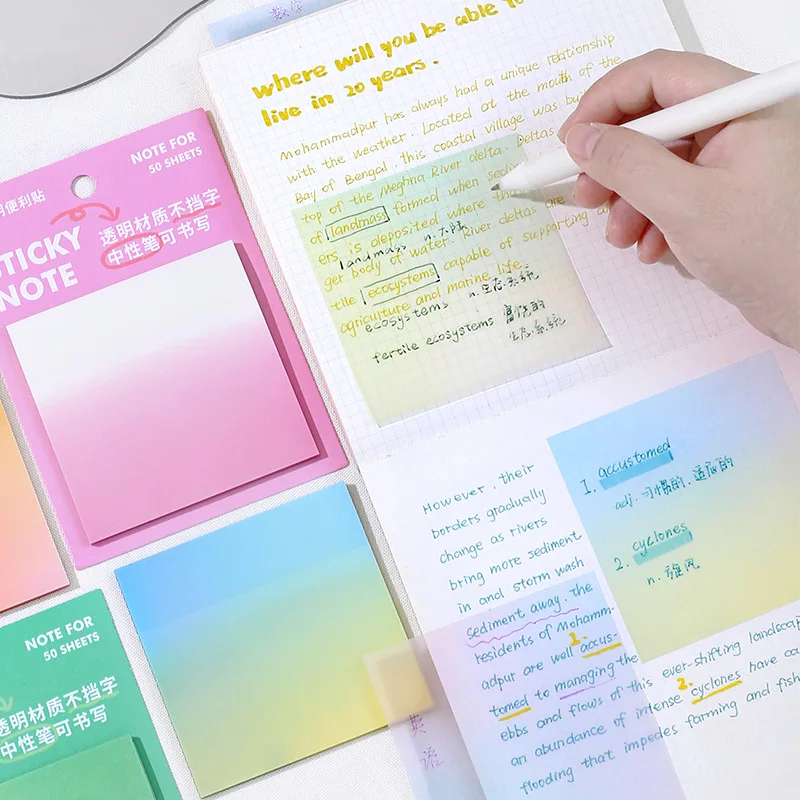 数学
where will you be able to
live in 20 years.
Mohammadpur has always had a unique relationship
with the weather. Located at the mouth of the
Bay of Bengal, this coastal village was
top of the Meghna River delta. Deltas
of landmass formed when
ers is deposited where
landmass n.
ger body of water. River deltas are
tile ecosystems capable of supporting
agriculture and marine life.
ecosystems n. 生态系统
fertile ecosystems 富饶的
生态系统
NOTE FOR
50 SHEETS
明便利贴
STICKY
NOTE
透明材质不挡字
中性笔可书写
NOTE FOR
50 SHEETS
透明材质不挡字
中性笔可书写
1. accustomed
adj. 习惯的. 适应的
2. cyclones
n. 旋风
However, their
borders gradually
change as rivers
bring more sediment
in and storm wash
sediment away. the
residents of Mohamm-
1.
adpur are well accus-
tomed to managing the
ebbs and flows of this ever-shifting landscap
2.
an abundance of intense cyclones have
flooding that impedes farming and fish
英
语